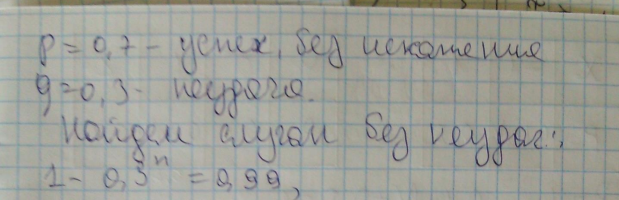 p = 0,7 - успех, без искажения
q = 0,3 - неудача.
Найдем случаи без неудач:
1 - 0,3^n = 0,99,